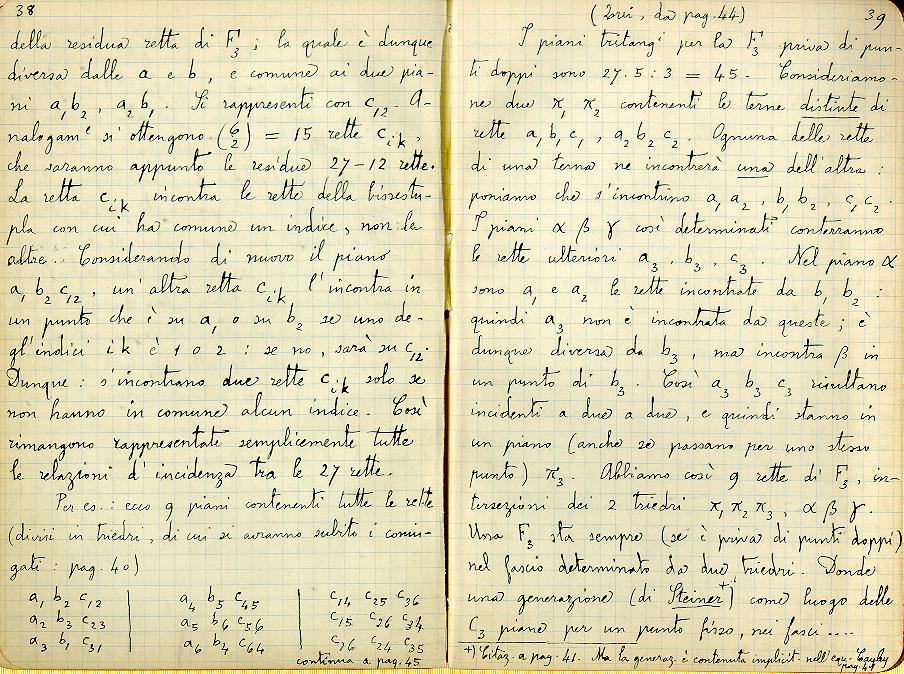 38
della residua retta di F3 ; la quale è dunque
diversa dalle a e b, e comune ai due pia-
ni a1b2, a2b1. Si rappresenti con c12. A-
nalogamte si ottengono (6 2) = 15 rette cik,
che saranno appunto le residue 27-12 rette.
La retta cik incontra le rette della bisestu-
pla con cui ha comune un indice, non le
altre. Considerando di nuovo il piano
a1 b2 c12, un'altra retta cik l'incontra in
un punto che è su a1 o su b2 se uno de-
gl'indici ik è 1 o 2 : se no, sarà su c12.
Dunque : s'incontrano due rette cik solo se
non hanno in comune alcun indice. Così
rimangono rappresentate semplicemente tutte
le relazioni d'incidenza tra le 27 rette.
Per es. : ecco 9 piani contenenti tutte le rette
(divisi in triedri, di cui si avranno subito i coniu-
gati : pag. 40)
a1 b2 c12 | a4 b5 c45 | c14 c25 c36
a2 b3 c23 | a5 b6 c56 | c15 c26 c34
a3 b1 c31 | a6 b4 c64 | c16 c24 c35
continua a pag. 45
(Qui, da pag. 44)
39
I piani tritangi per la F3 priva di pun-
ti doppi sono 27.5:3 = 45. Consideriamo-
ne due π1 π2 contenenti le terne distinte di
rette a1b1c1, a2b2c2. Ognuna delle rette
di una terna ne incontrerà una dell'altra :
poniamo che s'incontrino a1a2, b1b2, c1c2.
I piani α β γ così determinati conterranno
le rette ulteriori a3, b3, c3. Nel piano α
sono a1 e a2 le rette incontrate da b1 b2 :
quindi a3 non è incontrata da queste ; è
dunque diversa da b3, ma incontra β in
un punto di b3. Così a3 b3 c3 risultano
incidenti a due a due, e quindi stanno in
un piano (anche se passano per uno stesso
punto) π3. Abbiamo così 9 rette di F3, in-
tersezioni dei 2 triedri π1π2π3, αβγ.
Una F3 sta sempre (se è priva di punti doppi)
nel fascio determinato da due triedri. Donde
una generazione (di Steiner+)) come luogo delle
C3 piane per un punto fisso, nei fasci ....
+) Citaz. a pag. 41. Ma la generaz. è contenuta implicit. nell'equ. Cayley
pag. 41